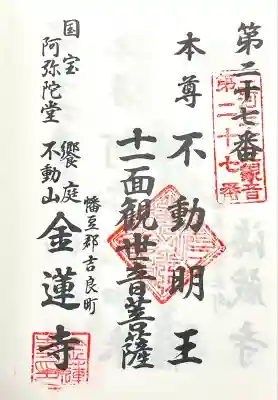 第二十七番
本尊 不動明王
十一面観世音菩薩
幡豆郡吉良町
饗庭
不動山 金蓮寺
国宝
阿弥陀堂
第二十七番